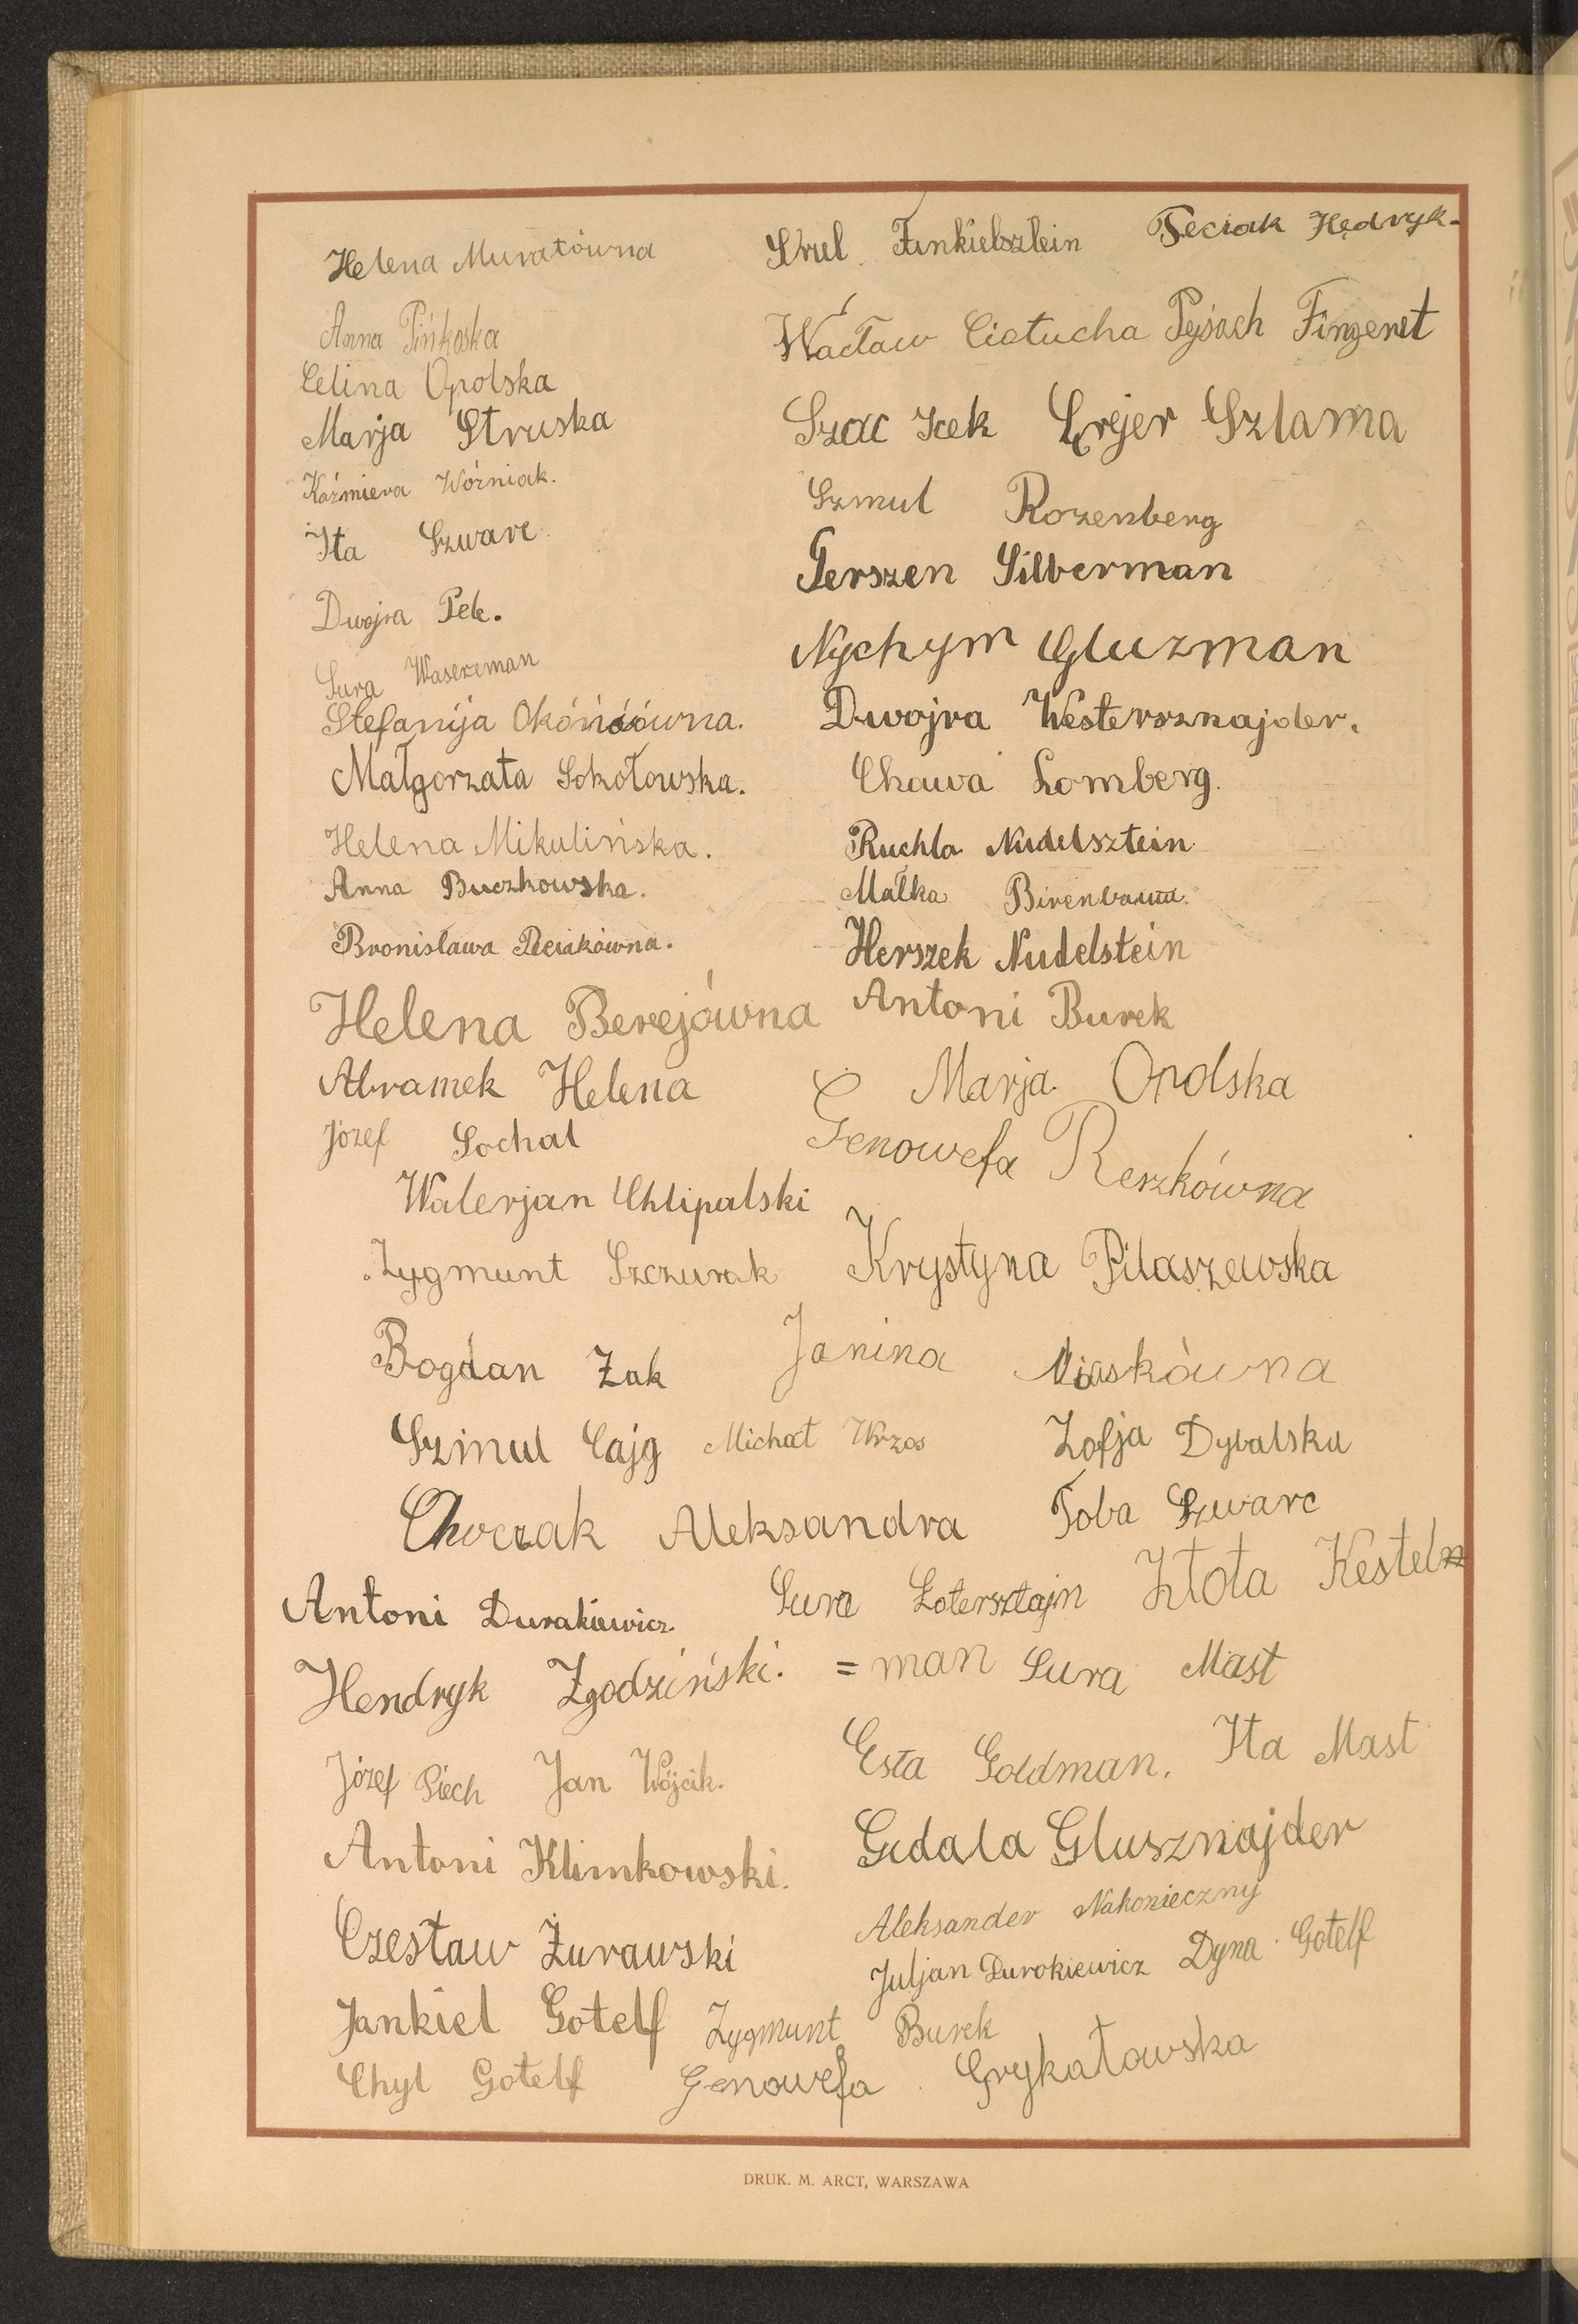 Helena Muratówna
Anna Pińkoska
Celina Opolska
Marja Struska
Kaźmiera Woźniak.
Ita Szwarc
Dwojra Pele.
Sura Waserman
Stefanija
Małgorzata Sokołowska.
Helena Mikulińska.
Anna Buczkowska.
Bronisława Peciakówna.
Helena Berejówna
Abramek Helena
Józef Sochal
Walerjan Chlipalski
Zygmunt Szczurak
Bogdan Żak
Szmul Cajg Michał Wrzos
Aleksandra
Antoni Durakiewicz.
Hendryk Zgodziński.
Józef Piech Jan Wójcik.
Antoni Klimkowski.
Czesław Żurawski
Jankiel Gotelf Zygmunt Burek
Chyl Gotelf Genowefa Grykałowska
Srul Finkielsztein Peciak Hędryk-
Wacław Ciołucha Pejsach Fingeret
Szac Icek Lejer Szlama
Szmul Rozenberg
Gerszen Silberman
Nychym Gluzman
Dwojra Westersznajder.
Chawa Lomberg.
Ruchla Nudelsztein
Małka Birenbaum.
Herszek Nudelstein
Antoni Burek
Marja Opolska
Genowefa Reszkówna
Krystyna Pilaszewska
Janina Miaskówna
Zofja Dybalska
Toba Szwarc
Sura Lotersztajn Złota Kesteln
=man Sura Mast
Esta Goldman. Ita Mast
Gdala Glusznajder
Aleksander Nakonieczny
Juljan Durokiewicz Dyna Gotelf
DRUK. M. ARCT, WARSZAWA